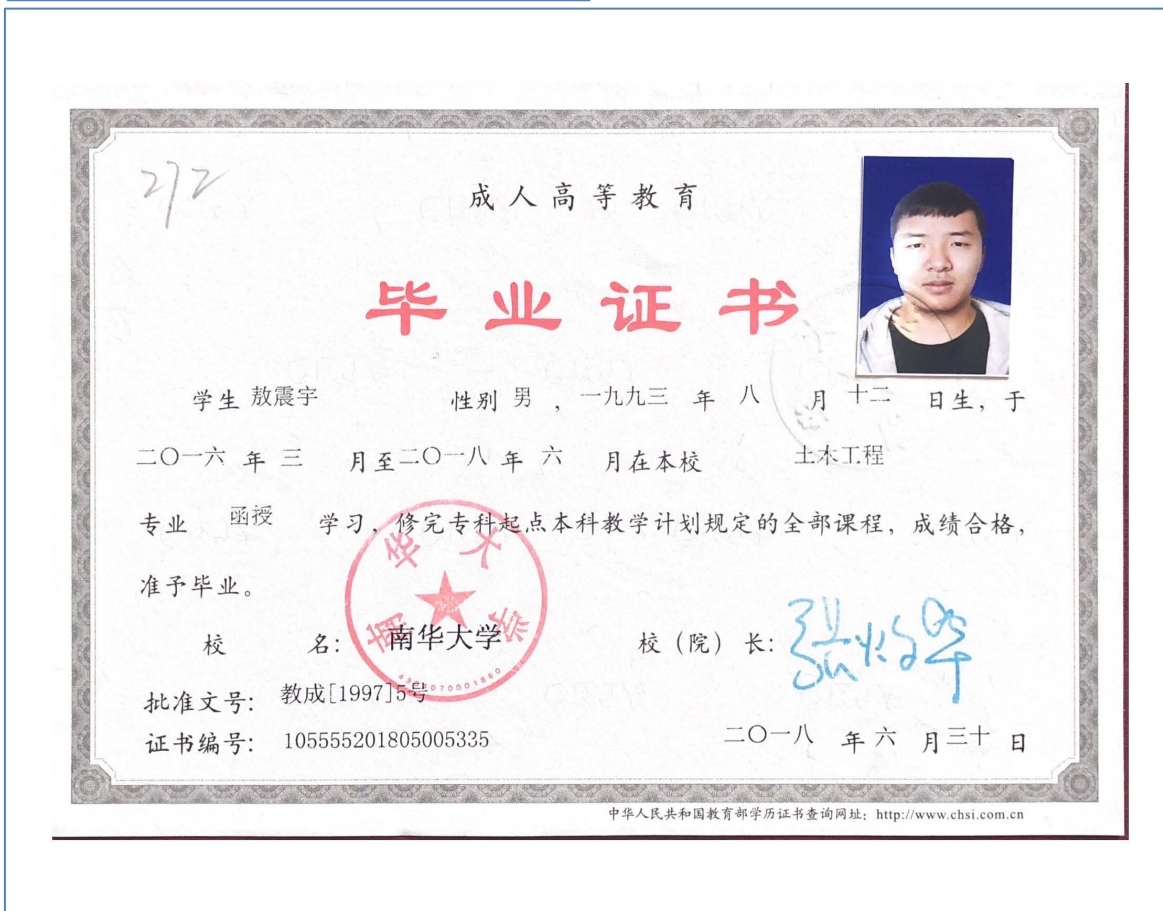 2/2
成人高等教育
毕业证书
学生 敖震宇 性别 男 ，一九九三 年 八 月 十二 日生，于
二〇一六 年 三 月至二〇一八 年 六 月在本校 土木工程
专业 函授 学习，修完专科起点本科教学计划规定的全部课程，成绩合格，
准予毕业。
南华大学
校 名： 南华大学 校（院）长：
批准文号： 教成[1997]5号
证书编号： 105555201805005335 二〇一八 年 六 月三十 日
中华人民共和国教育部学历证书查询网址：http://www.chsi.com.cn